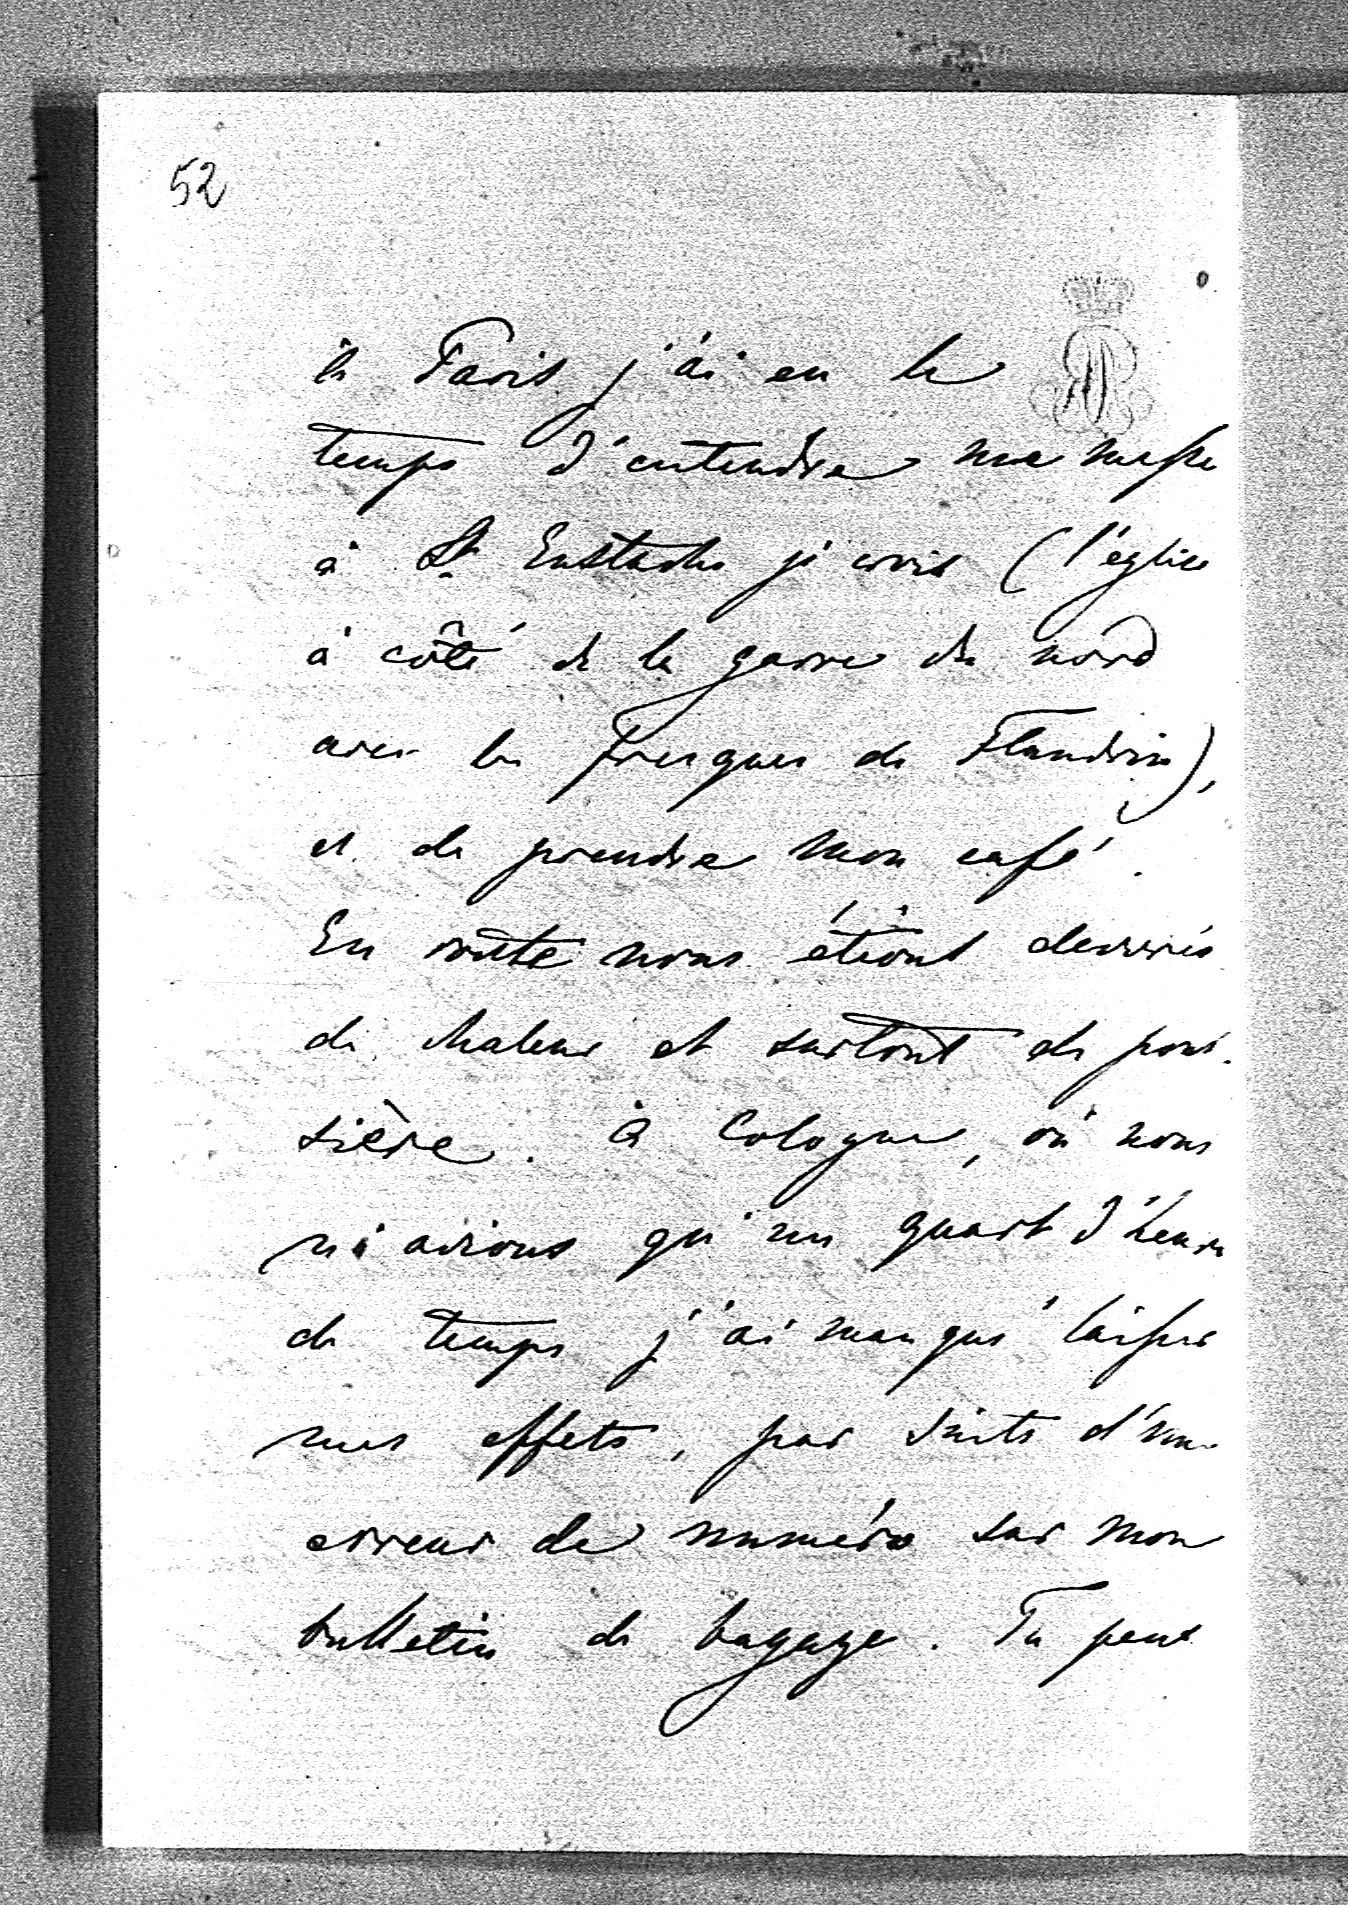 52
à Paris j'ai eu le
temps d'entendre une messe
à St Eustache je crois (l'église
à côté de la garre du nord
avec les fresques de Flandrin),
et de prendre mon café.
En route nous étions devorés
de chaleur et surtout de pous-
sière. à Cologne, où nous
n'avions qu'un quart d'heure
de temps j'ai manqué laisser
mes effets, par suite d'une
erreur de numéro sur mon
bulletin de bagage. Tu peux